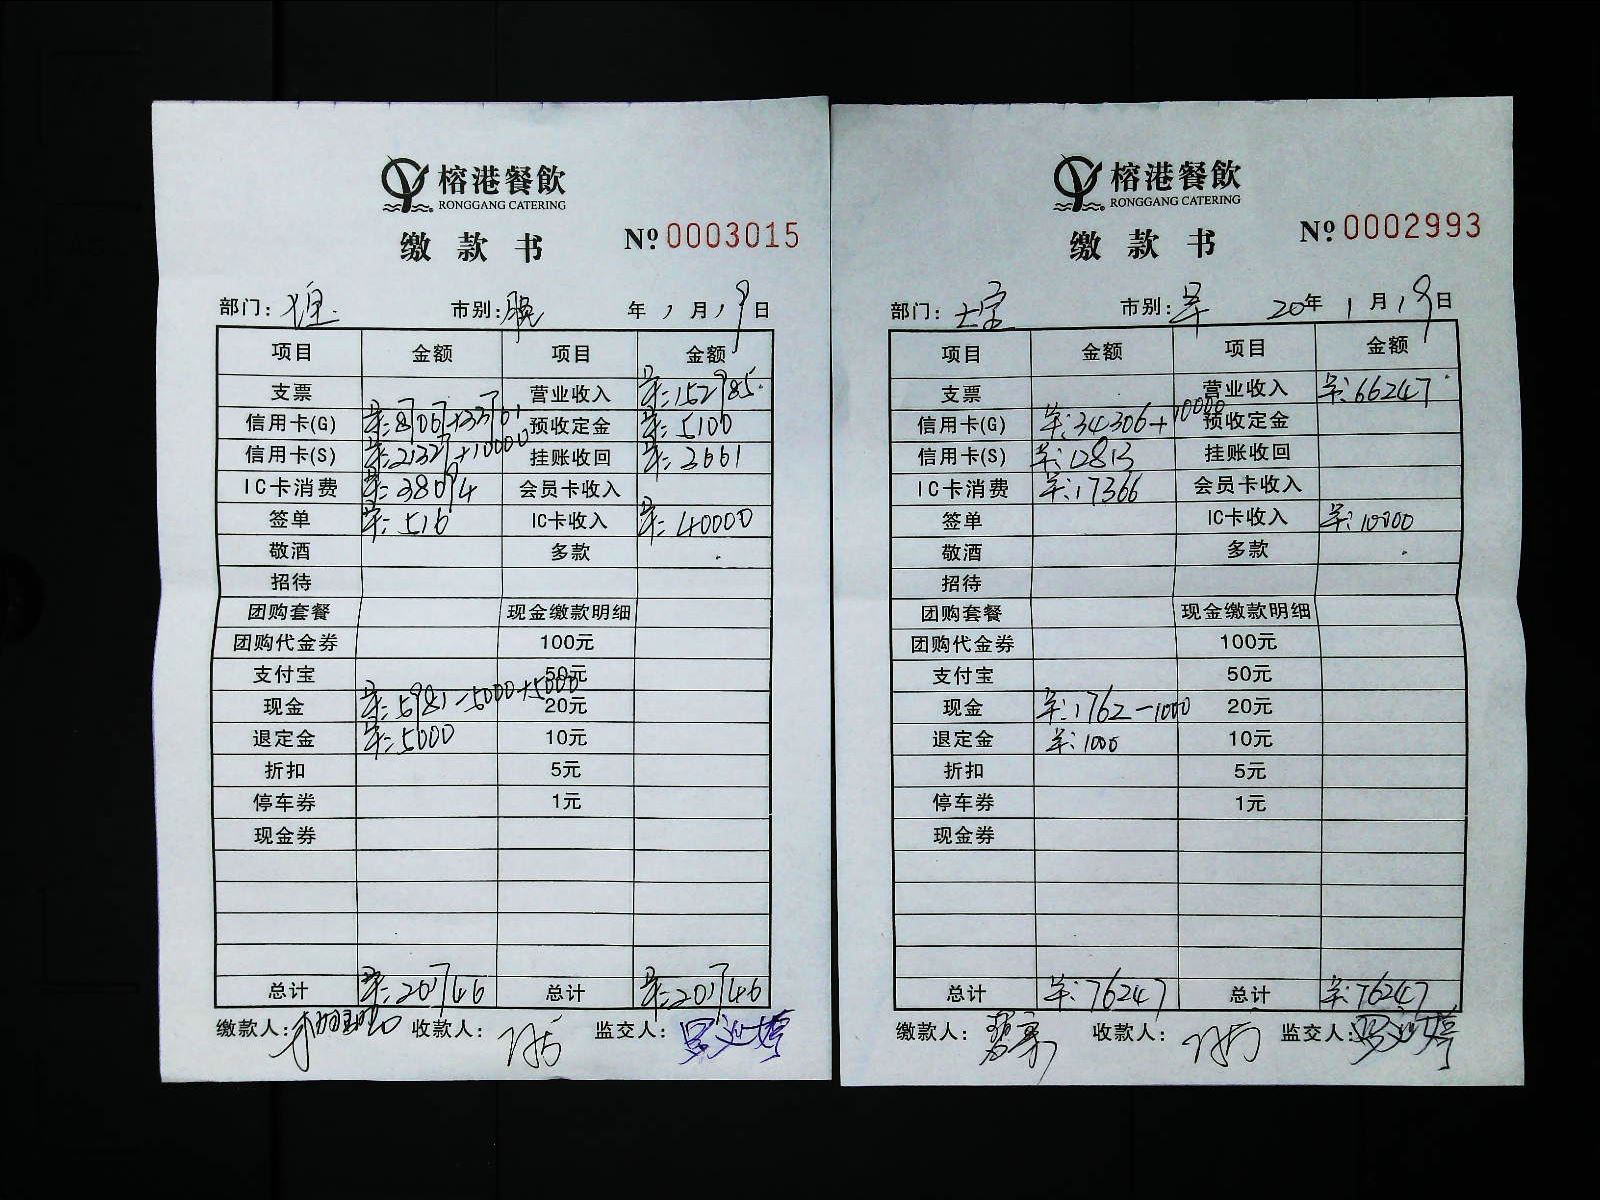 榕港餐飲
RONGGANG CATERING
缴款书
№ 0003015
部门: 市别: 晚 年 1 月 19 日
项目 金额 项目 金额
支票 营业收入 152985
信用卡(G) 预收定金 5100
信用卡(S) 21327+10000 挂账收回 3661
IC卡消费 38094 会员卡收入
签单 516 IC卡收入 40000
敬酒 多款
招待
团购套餐 现金缴款明细
团购代金券 100元
支付宝 50元
现金 5981-5000+5000 20元
退定金 5000 10元
折扣 5元
停车券 1元
现金券
总计 201746 总计 201746
缴款人: 收款人: 监交人:
榕港餐飲
RONGGANG CATERING
缴款书
№ 0002993
部门: 市别: 早 20年 1 月 19日
项目 金额 项目 金额
支票 营业收入 66247
信用卡(G) 34306+10000 预收定金
信用卡(S) 12813 挂账收回
IC卡消费 17366 会员卡收入
签单 IC卡收入 10000
敬酒 多款
招待
团购套餐 现金缴款明细
团购代金券 100元
支付宝 50元
现金 1762-1000 20元
退定金 1000 10元
折扣 5元
停车券 1元
现金券
总计 76247 总计 76247
缴款人: 收款人: 监交人: